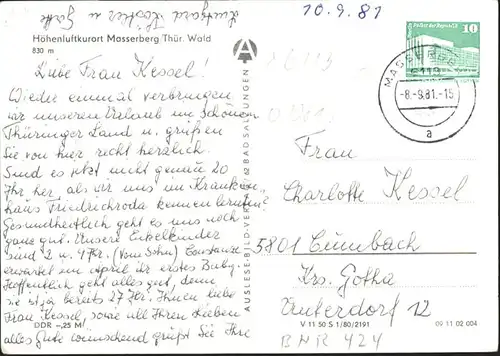 10.9.81
Höhenluftkurort Masserberg Thür. Wald
830 m
Liebe Frau Kessel!
Wieder einmal verbringen
wir unseren Urlaub im schönen
Thüringer Land u. grüßen
Sie von hier recht herzlich.
Sind es jetzt nicht genau 20
Jhr her als wir uns im Kranken-
haus Friedrichroda kennenlernten?
Gesundheitlich geht es uns noch
ganz gut. Unsere Enkelkinder
sind 2 u. 4 Jhr. (vom Sohn) Constanze
erwartet im April ihr erstes Baby.
Hoffentlich geht alles gut, denn
sie ist ja bereits 27 Jhr. Ihnen liebe
Frau Kessel, sowie all Ihren Lieben
alles Gute wünschend grüßt Sie Ihre
Luitgard u. Gatte
DDR –,25 M
AUSLESE-BILD-VERLAG 62 BAD SALZUNGEN
A
Palast der Republik
10
DDR
MASSERBERG
-8.-9.81.-15
a
Frau
Charlotte Kessel
5801 Cumbach
Krs. Gotha
Unterdorf 12
V 11 50 S 1/80/2191
09 11 02 004
BHR 424